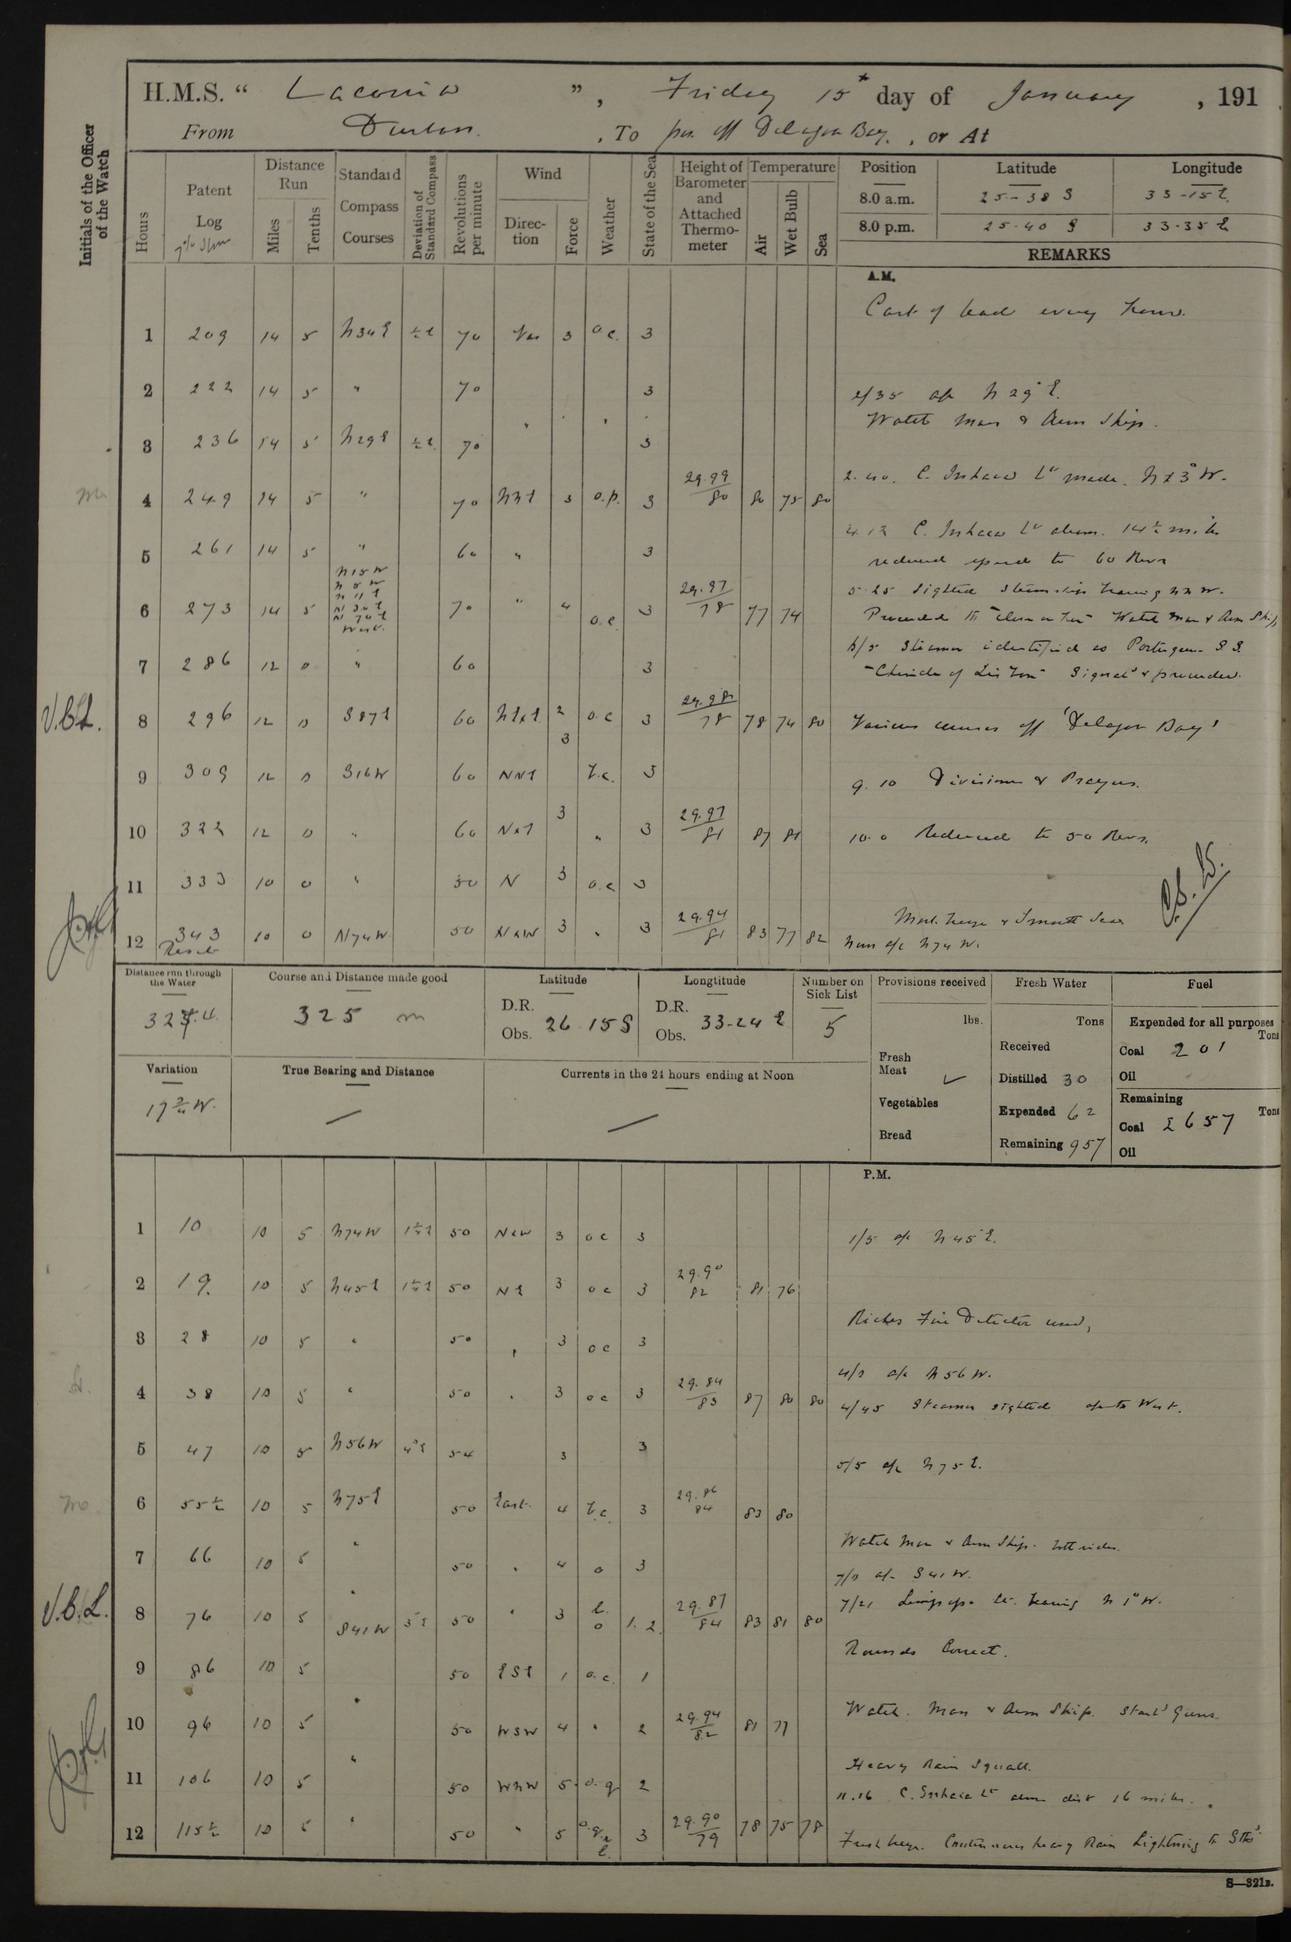 H.M.S. “ Laconia ” , Friday 15th day of January , 191
From Durban. , To pos. off Delagoa Bay. , or At
Initials of the Officer of the Watch
Hours
Patent Log
7% Slow
Distance Run
Miles
Tenths
Standard Compass Courses
Deviation of Standard Compass
Revolutions per minute
Wind
Direction
Force
Weather
State of the Sea
Height of Barometer and Attached Thermometer
Temperature
Air
Wet Bulb
Sea
Position Latitude Longitude
8.0 a.m. 25-38 S 33-15 E
8.0 p.m. 25-40 S 33-35 E
REMARKS
A.M.
Cast of lead every hour.
1 209 14 5 N34E ½E 70 Var 3 o.c. 3
2 222 14 5 " 70 3 2/35 a/c N 29° E.
Watch Man & Arm Ship.
3 236 14 5 N29E ½E 70 " " " 3
2.40. C. Inhaca Lt made. N 23° W.
4 249 14 5 " 70 NNE 3 o.p. 3 29.99/80 80 75 80
4.12 C. Inhaca Lt abeam. 14½ miles
5 261 14 5 " 60 " 3 reduced speed to 60 Revs
N15W
N 5 W
N 11 E
N 34 E
N 74 E
West.
5.25 Sighted steamship bearing NNW.
6 273 14 5 70 " 4 o.c. 3 29.97/78 77 74 Proceeded to "Close on her" Watch Man & Arm Ship
6/5 Steamer identified as Portuguese S.S.
7 286 12 0 " 60 3 Signal & proceeded.
V.B.L.
8 296 12 0 S87E 60 NExE 2 3 o.c 3 29.98/78 78 74 80 Various courses off 'Delagoa Bay'
9 309 12 0 S16W 60 NNE b.c. 3
9.10 Divisions & Prayers.
10 322 12 0 " 60 NxE 3 " 3 29.97/81 87 81 10.0 Reduced to 50 Revs.
11 333 10 0 " 50 N 3 o.c 3
Mod. breeze & Smooth Sea
12 343 10 0 N74W 50 NxW 3 " 3 29.94/81 83 77 82 Noon a/c N74 W.
Reset
Distance run through the Water
324.4
Course and Distance made good
325 m
Latitude
D.R.
Obs. 26 15 S
Longtitude
D.R.
Obs. 33-24 E
Number on Sick List
5
Provisions received
lbs.
Fresh Meat
Vegetables
Bread
Fresh Water
Tons
Received
Distilled 30
Expended 62
Remaining 957
Fuel
Expended for all purposes
Tons
Coal 201
Oil
Remaining
Tons
Coal 2657
Oil
Variation
17¾ W.
True Bearing and Distance
Currents in the 24 hours ending at Noon
P.M.
1 10 10 5 N74W 1½E 50 NxW 3 o c 3 1/5 a/c N 45 E.
2 19. 10 5 N45E 1½E 50 NE 3 o c 3 29.90 82 81 76
Riches Fire Detector used,
3 28 10 5 " 50 , 3 o c 3
4/0 a/c N 56 W.
4 38 10 5 " 50 " 3 o c 3 29.84/83 87 80 80 4/45 Steamer sighted a/c to West.
5 47 10 5 N56W 4°E 54 3 3
5/5 a/c N 75 E.
6 55½ 10 5 N75E 50 East. 4 b.c. 3 29.86 84 83 80
Watch Man & Arm Ship. both sides.
7 66 10 5 " 50 " 4 o 3 7/0 a/c S41 W.
V.B.L.
8 76 10 5 S41W 5°E 50 " 3 b. o 1. 2. 29.87/84 83 81 80 bearing N 1° W.
Rounds Correct.
9 86 10 5 50 ESE 1 o.c. 1
10 96 10 5 " 50 WSW 4 " 2 29.94/82 81 77 Watch. Man & Arm Ship. Starbd Guns.
Heavy Rain Squall.
11 106 10 5 " 50 WNW 5. o.q 2 11.16 C. Inhaca Lt abm dist 16 miles.
12 115½ 10 5 " 50 " 5 o.q.r l. 3 29.90/79 78 75 78 Fresh breeze. Continuous heavy Rain Lightning to Sthd
S—321B.